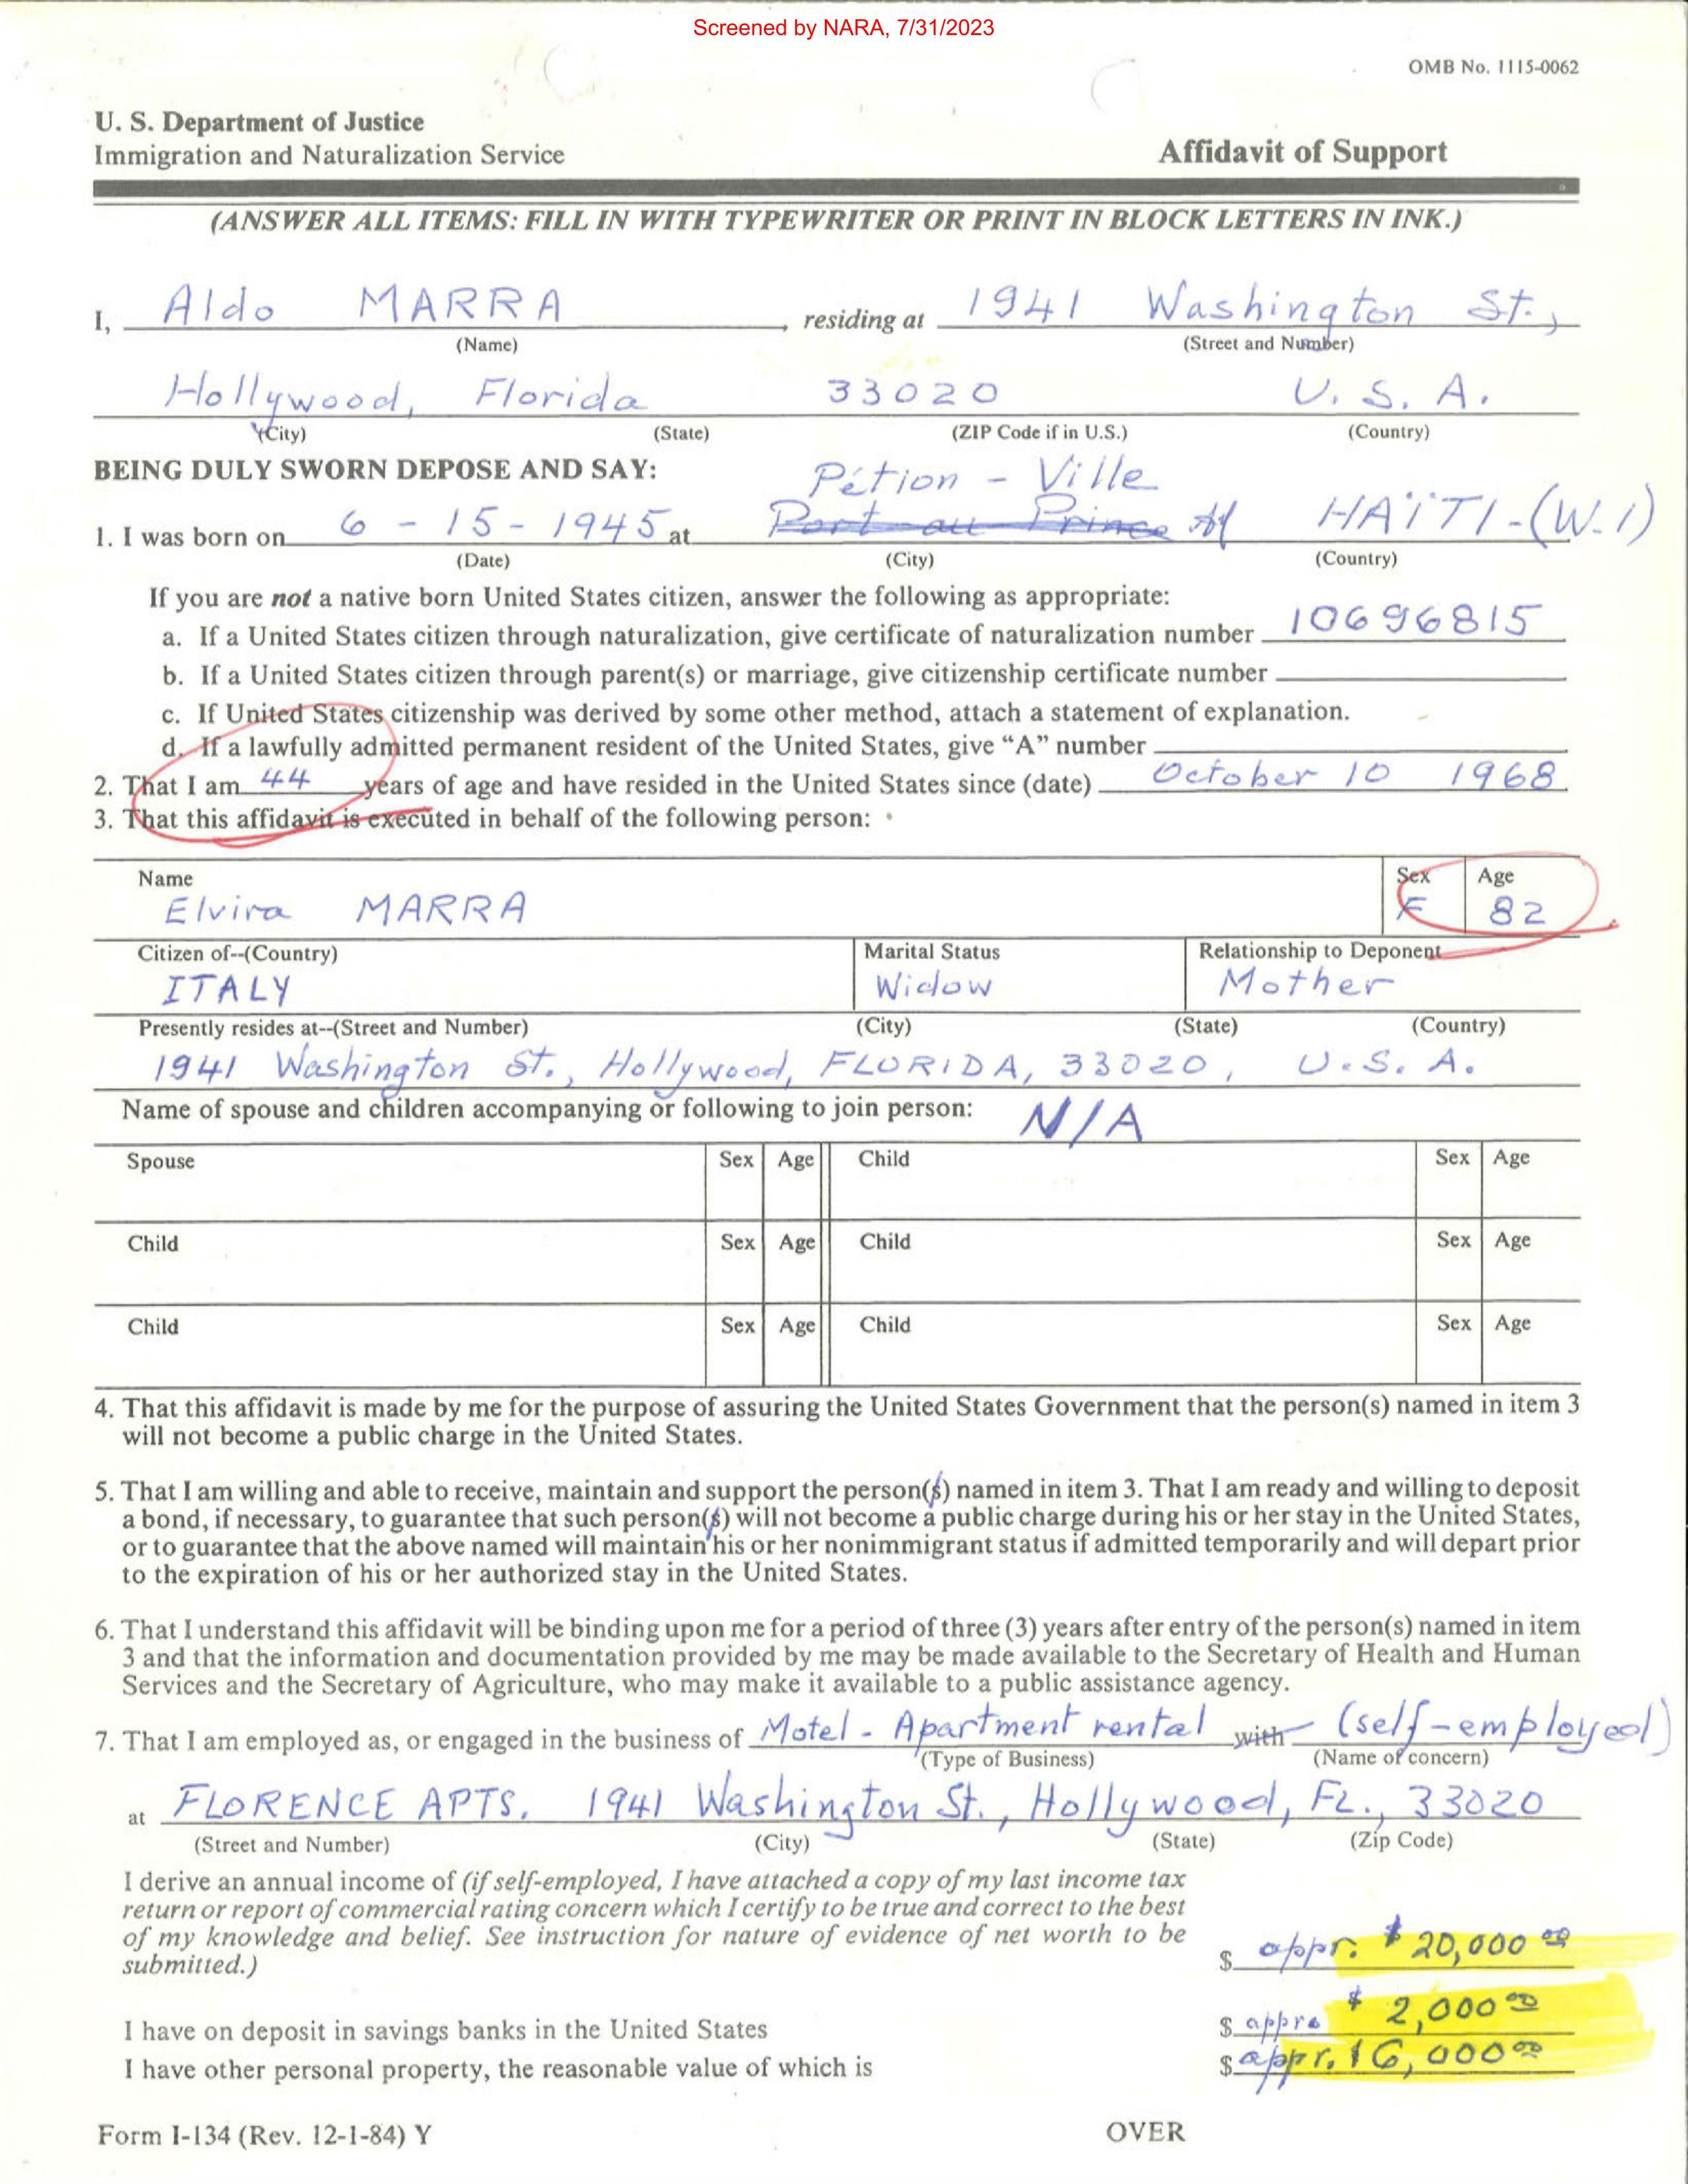 Screened by NARA, 7/31/2023
OMB No. 1115-0062
U. S. Department of Justice
Immigration and Naturalization Service
Affidavit of Support
(ANSWER ALL ITEMS: FILL IN WITH TYPEWRITER OR PRINT IN BLOCK LETTERS IN INK.)
I, Aldo MARRA, residing at 1941 Washington St.,
(Name) (Street and Number)
Hollywood, Florida 33020 U. S. A.
(City) (State) (ZIP Code if in U.S.) (Country)
BEING DULY SWORN DEPOSE AND SAY:
Pétion - Ville
1. I was born on 6 - 15 - 1945 at Port au Prince HAÏTI - (W.I)
(Date) (City) (Country)
If you are not a native born United States citizen, answer the following as appropriate:
a. If a United States citizen through naturalization, give certificate of naturalization number 10696815
b. If a United States citizen through parent(s) or marriage, give citizenship certificate number
c. If United States citizenship was derived by some other method, attach a statement of explanation.
d. If a lawfully admitted permanent resident of the United States, give “A” number
2. That I am 44 years of age and have resided in the United States since (date) October 10 1968
3. That this affidavit is executed in behalf of the following person:
Name Sex Age
Elvira MARRA F 82
Citizen of--(Country) Marital Status Relationship to Deponent
ITALY Widow Mother
Presently resides at--(Street and Number) (City) (State) (Country)
1941 Washington St., Hollywood, FLORIDA, 33020, U.S. A.
Name of spouse and children accompanying or following to join person: N/A
Spouse Sex Age Child Sex Age
Child Sex Age Child Sex Age
Child Sex Age Child Sex Age
4. That this affidavit is made by me for the purpose of assuring the United States Government that the person(s) named in item 3
will not become a public charge in the United States.
5. That I am willing and able to receive, maintain and support the person(s) named in item 3. That I am ready and willing to deposit
a bond, if necessary, to guarantee that such person(s) will not become a public charge during his or her stay in the United States,
or to guarantee that the above named will maintain his or her nonimmigrant status if admitted temporarily and will depart prior
to the expiration of his or her authorized stay in the United States.
6. That I understand this affidavit will be binding upon me for a period of three (3) years after entry of the person(s) named in item
3 and that the information and documentation provided by me may be made available to the Secretary of Health and Human
Services and the Secretary of Agriculture, who may make it available to a public assistance agency.
7. That I am employed as, or engaged in the business of Motel - Apartment rental with (self-employed)
(Type of Business) (Name of concern)
at FLORENCE APTS. 1941 Washington St., Hollywood, FL., 33020
(Street and Number) (City) (State) (Zip Code)
I derive an annual income of (if self-employed, I have attached a copy of my last income tax
return or report of commercial rating concern which I certify to be true and correct to the best
of my knowledge and belief. See instruction for nature of evidence of net worth to be
submitted.) $ appr. $ 20,000 00
I have on deposit in savings banks in the United States $ appro $ 2,000 00
I have other personal property, the reasonable value of which is $ appr. 16,000 00
Form I-134 (Rev. 12-1-84) Y OVER